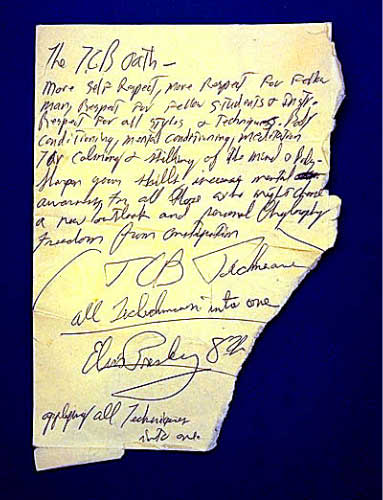 The TCB Oath –
More Self Respect, more Respect For Fellow
man, Respect For Fellow Students & Inst.
Respect For all styles & Techniques. Body
Conditioning, mental Conditioning, meditation
For Calming & stilling of the mind & Body.
Sharpen your skills, increase mental
awareness, for all those who might choose
a new outlook and personal Philosophy
Freedom from Constipation
TCB Technique
all Techniques into one
Elvis Presley 8th
applying all Techniques
into one.